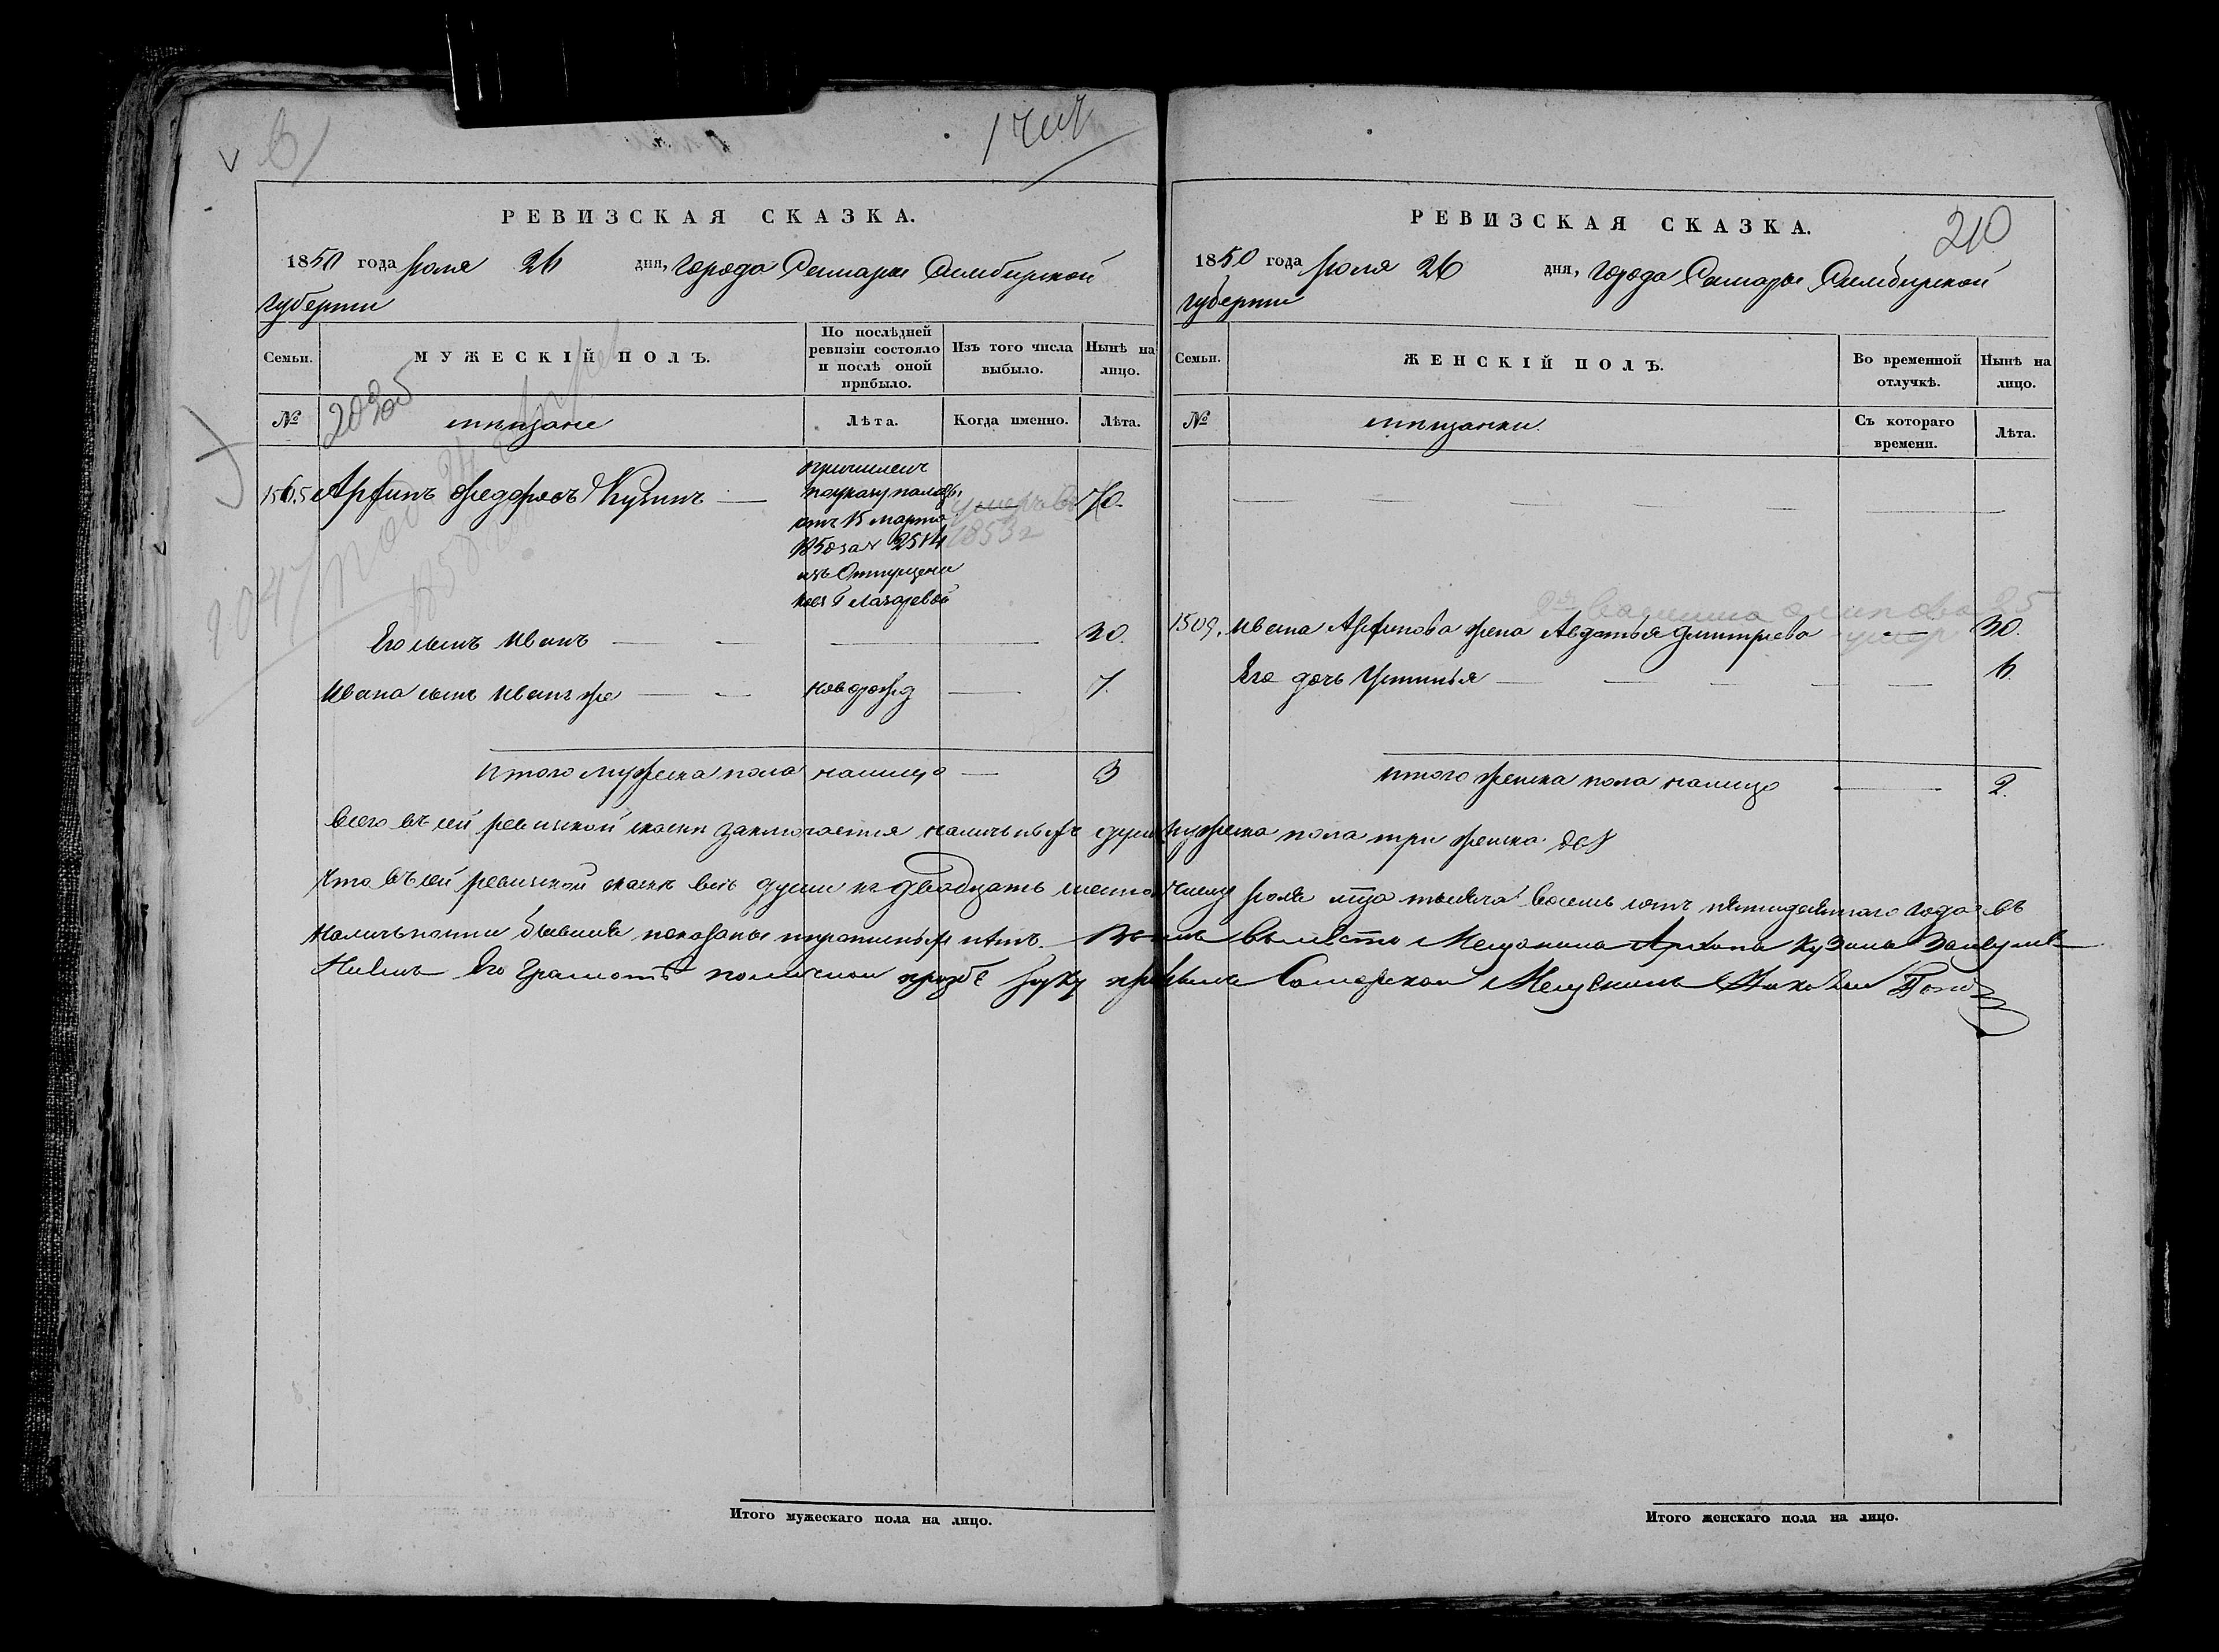 210
РЕВИЗСКАЯ СКАЗКА.
1850 года Июля 26 дня, города Самары Симбирской
губернии
Семьи.
МУЖЕСКІЙ ПОЛЪ.
По послѣдней ревизіи состояло и послѣ оной прибыло.
Изъ того числа выбыло.
Нынѣ на лицо.
№
мещане
Лѣта.
Когда именно.
Лѣта.
Архипъ Федоровъ Кузинъ
причисленъ
по указу палаты
отъ 15 марта
1850 за № 2514
изъ Отпущени
ковъ Г Лазаревой
умеръ въ
1853 г
70.
Его сынъ Иванъ 30.
Ивана сынъ Иванъ же новорожд 7.
Итого мужеска пола налицо 3
РЕВИЗСКАЯ СКАЗКА.
1850 года Июля 26 дня, города Самары Симбирской
губернии
Семьи.
ЖЕНСКІЙ ПОЛЪ.
Во временной отлучкѣ.
Нынѣ на лицо.
№
мещанки.
Съ котораго времени.
Лѣта.
25
1509. Ивана Архипова жена Авдотья Дмитриева умер 30.
Его дочь Устинья 6.
Итого женска пола налицо 2.
Всего въ сей ревизской сказке заключается наличныхъ душъ мужеска пола три женска две
Что въ сей ревизской сказке все души къ двадцать шестому числу Июля мца тысяча восемь сотъ пятидесятаго года въ
наличности бывшия показаны и прописныхъ нетъ. вместо Мещанина Архипа Кузина
Его Грамоте по личной прозбе руку приложилъ Самарской Мещенинъ
Итого мужескаго пола на лицо.
Итого женскаго пола на лицо.